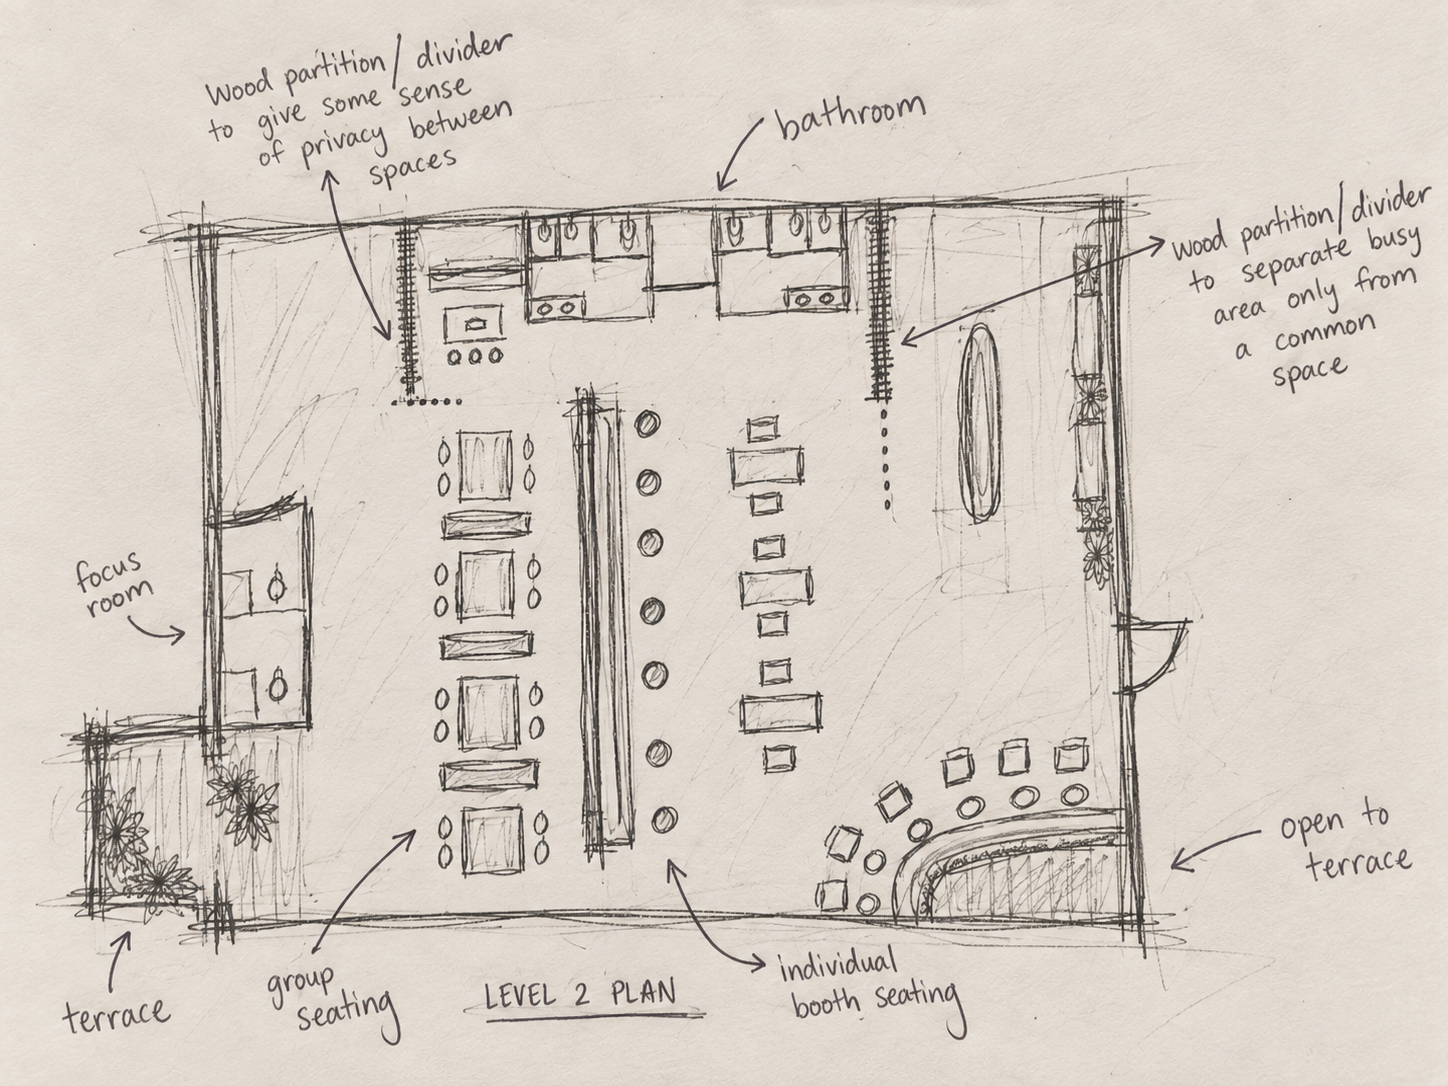 Wood partition/divider
to give some sense
of privacy between
spaces
bathroom
wood partition/divider
to separate busy
area only from
a common
space
focus
room
open to
terrace
terrace
group
seating
LEVEL 2 PLAN
individual
booth seating